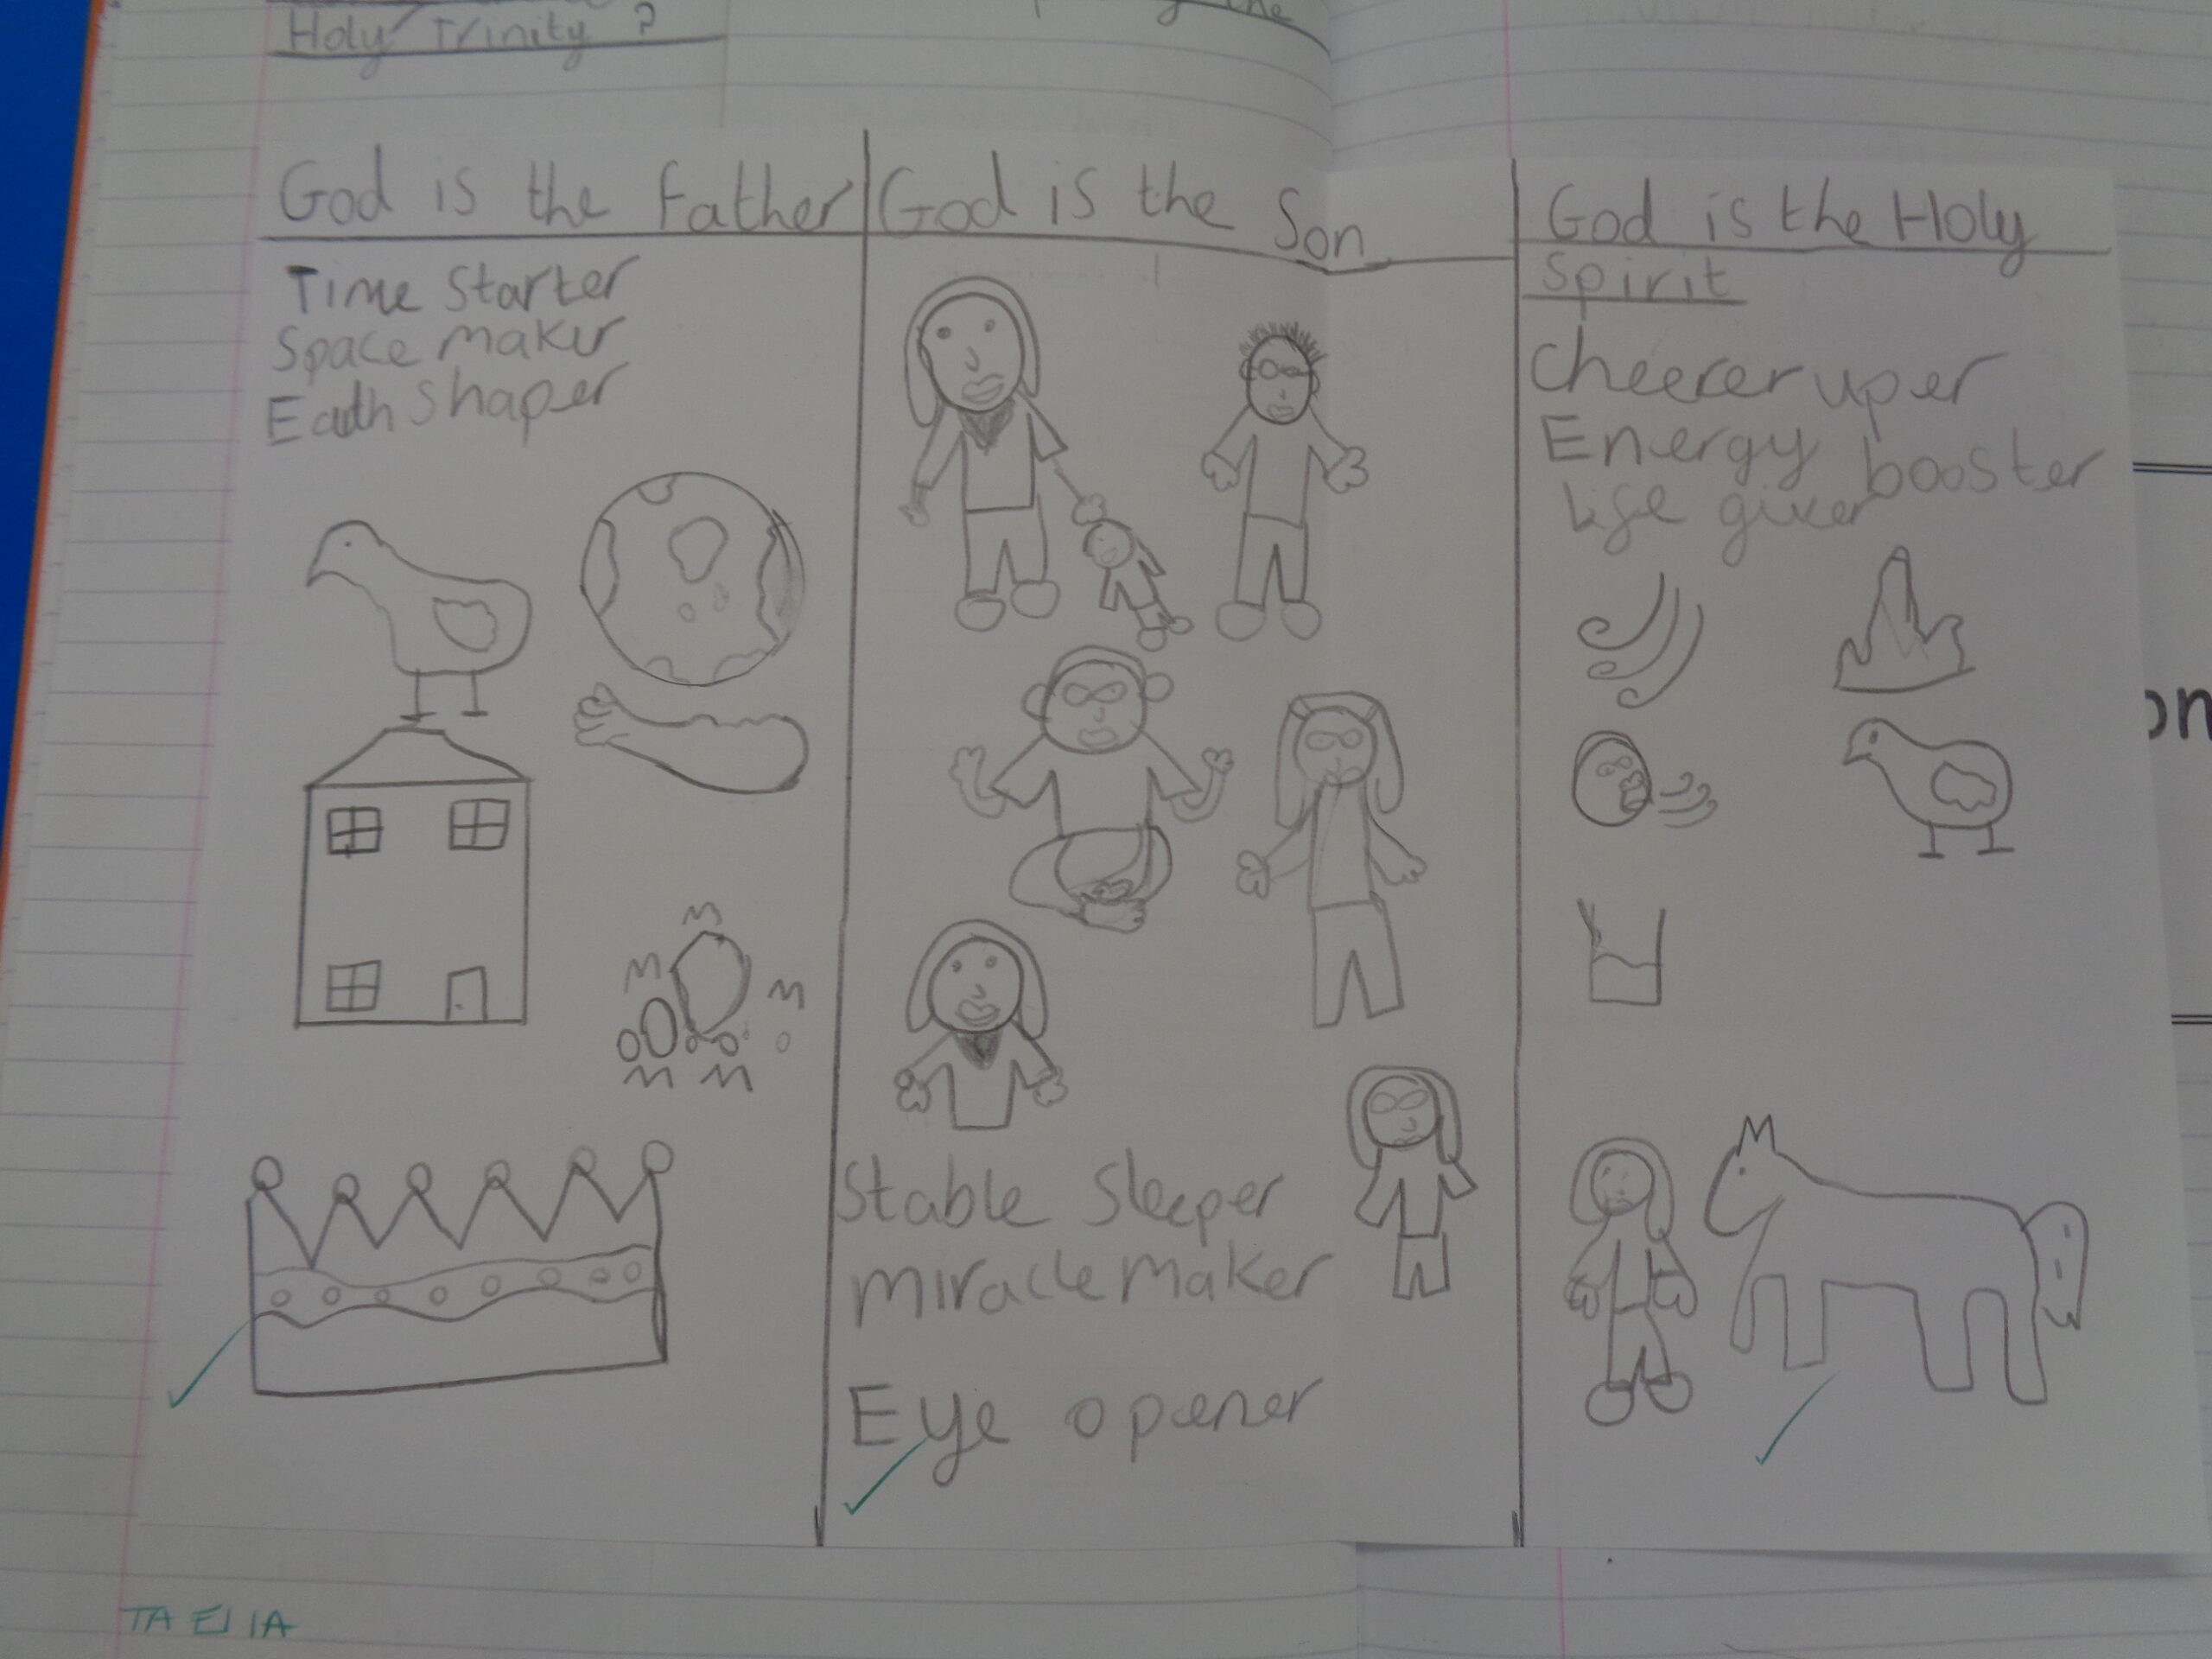 Holy Trinity ?
the
God is the Father
Time Starter
Space maker
Earth Shaper
God is the Son
Stable Sleeper
miracle maker
Eye opener
God is the Holy
Spirit
Cheerer uper
Energy booster
Life giver
on
TA EJ IA